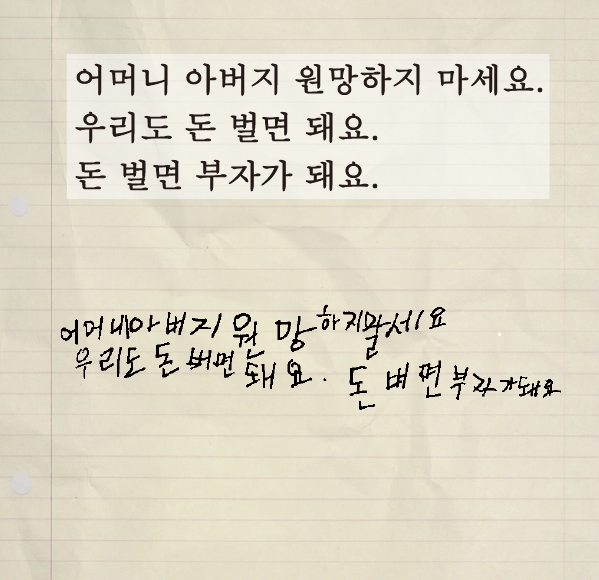 어머니 아버지 원망하지 마세요.
우리도 돈 벌면 돼요.
돈 벌면 부자가 돼요.
어머네아버지 원망하지말세요
우리도 돈 버면 돼요. 돈 벼면부자가돼요